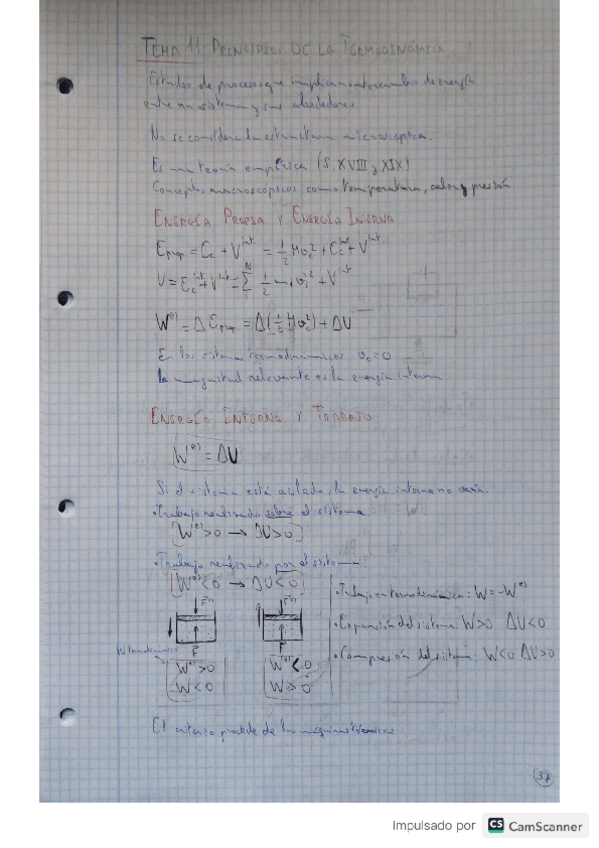 TEMA 11: PRINCIPIOS DE LA TERMODINÁMICA
Estudio de procesos que implican intercambio de energía
entre un sistema y sus alrededores
No se considera la estructura microscópica.
Es una teoría empírica (S. XVIII y XIX)
Conceptos macroscópicos como temperatura, calor y presión
ENERGÍA PROPIA Y ENERGÍA INTERNA
E_prop = E_c + V^int = 1/2 M v_c^2 + E_c^int + V^int
U = E_c^int + V^int = Σ 1/2 m_i v_i'^2 + V^int
W^(e) = Δ E_prop = Δ(1/2 M v_c^2) + ΔU
En los sistemas termodinámicos v_c = 0
La magnitud relevante es la energía interna
ENERGÍA INTERNA Y TRABAJO
W^(e) = ΔU
Si el sistema está aislado, la energía interna no varía.
• Trabajo realizado sobre el sistema
W^(e) > 0 → ΔU > 0
• Trabajo realizado por el sistema:
W^(e) < 0 → ΔU < 0
• Trabajo en termodinámica: W = -W^(e)
• Expansión del sistema: W>0 ΔU<0
• Compresión del sistema: W<0 ΔU>0
F^(e)
F
W termodinámico
W^(e) > 0
W < 0
F^(e)
F
W^(e) < 0
W > 0
El criterio procede de las máquinas térmicas
37
Impulsado por CS CamScanner